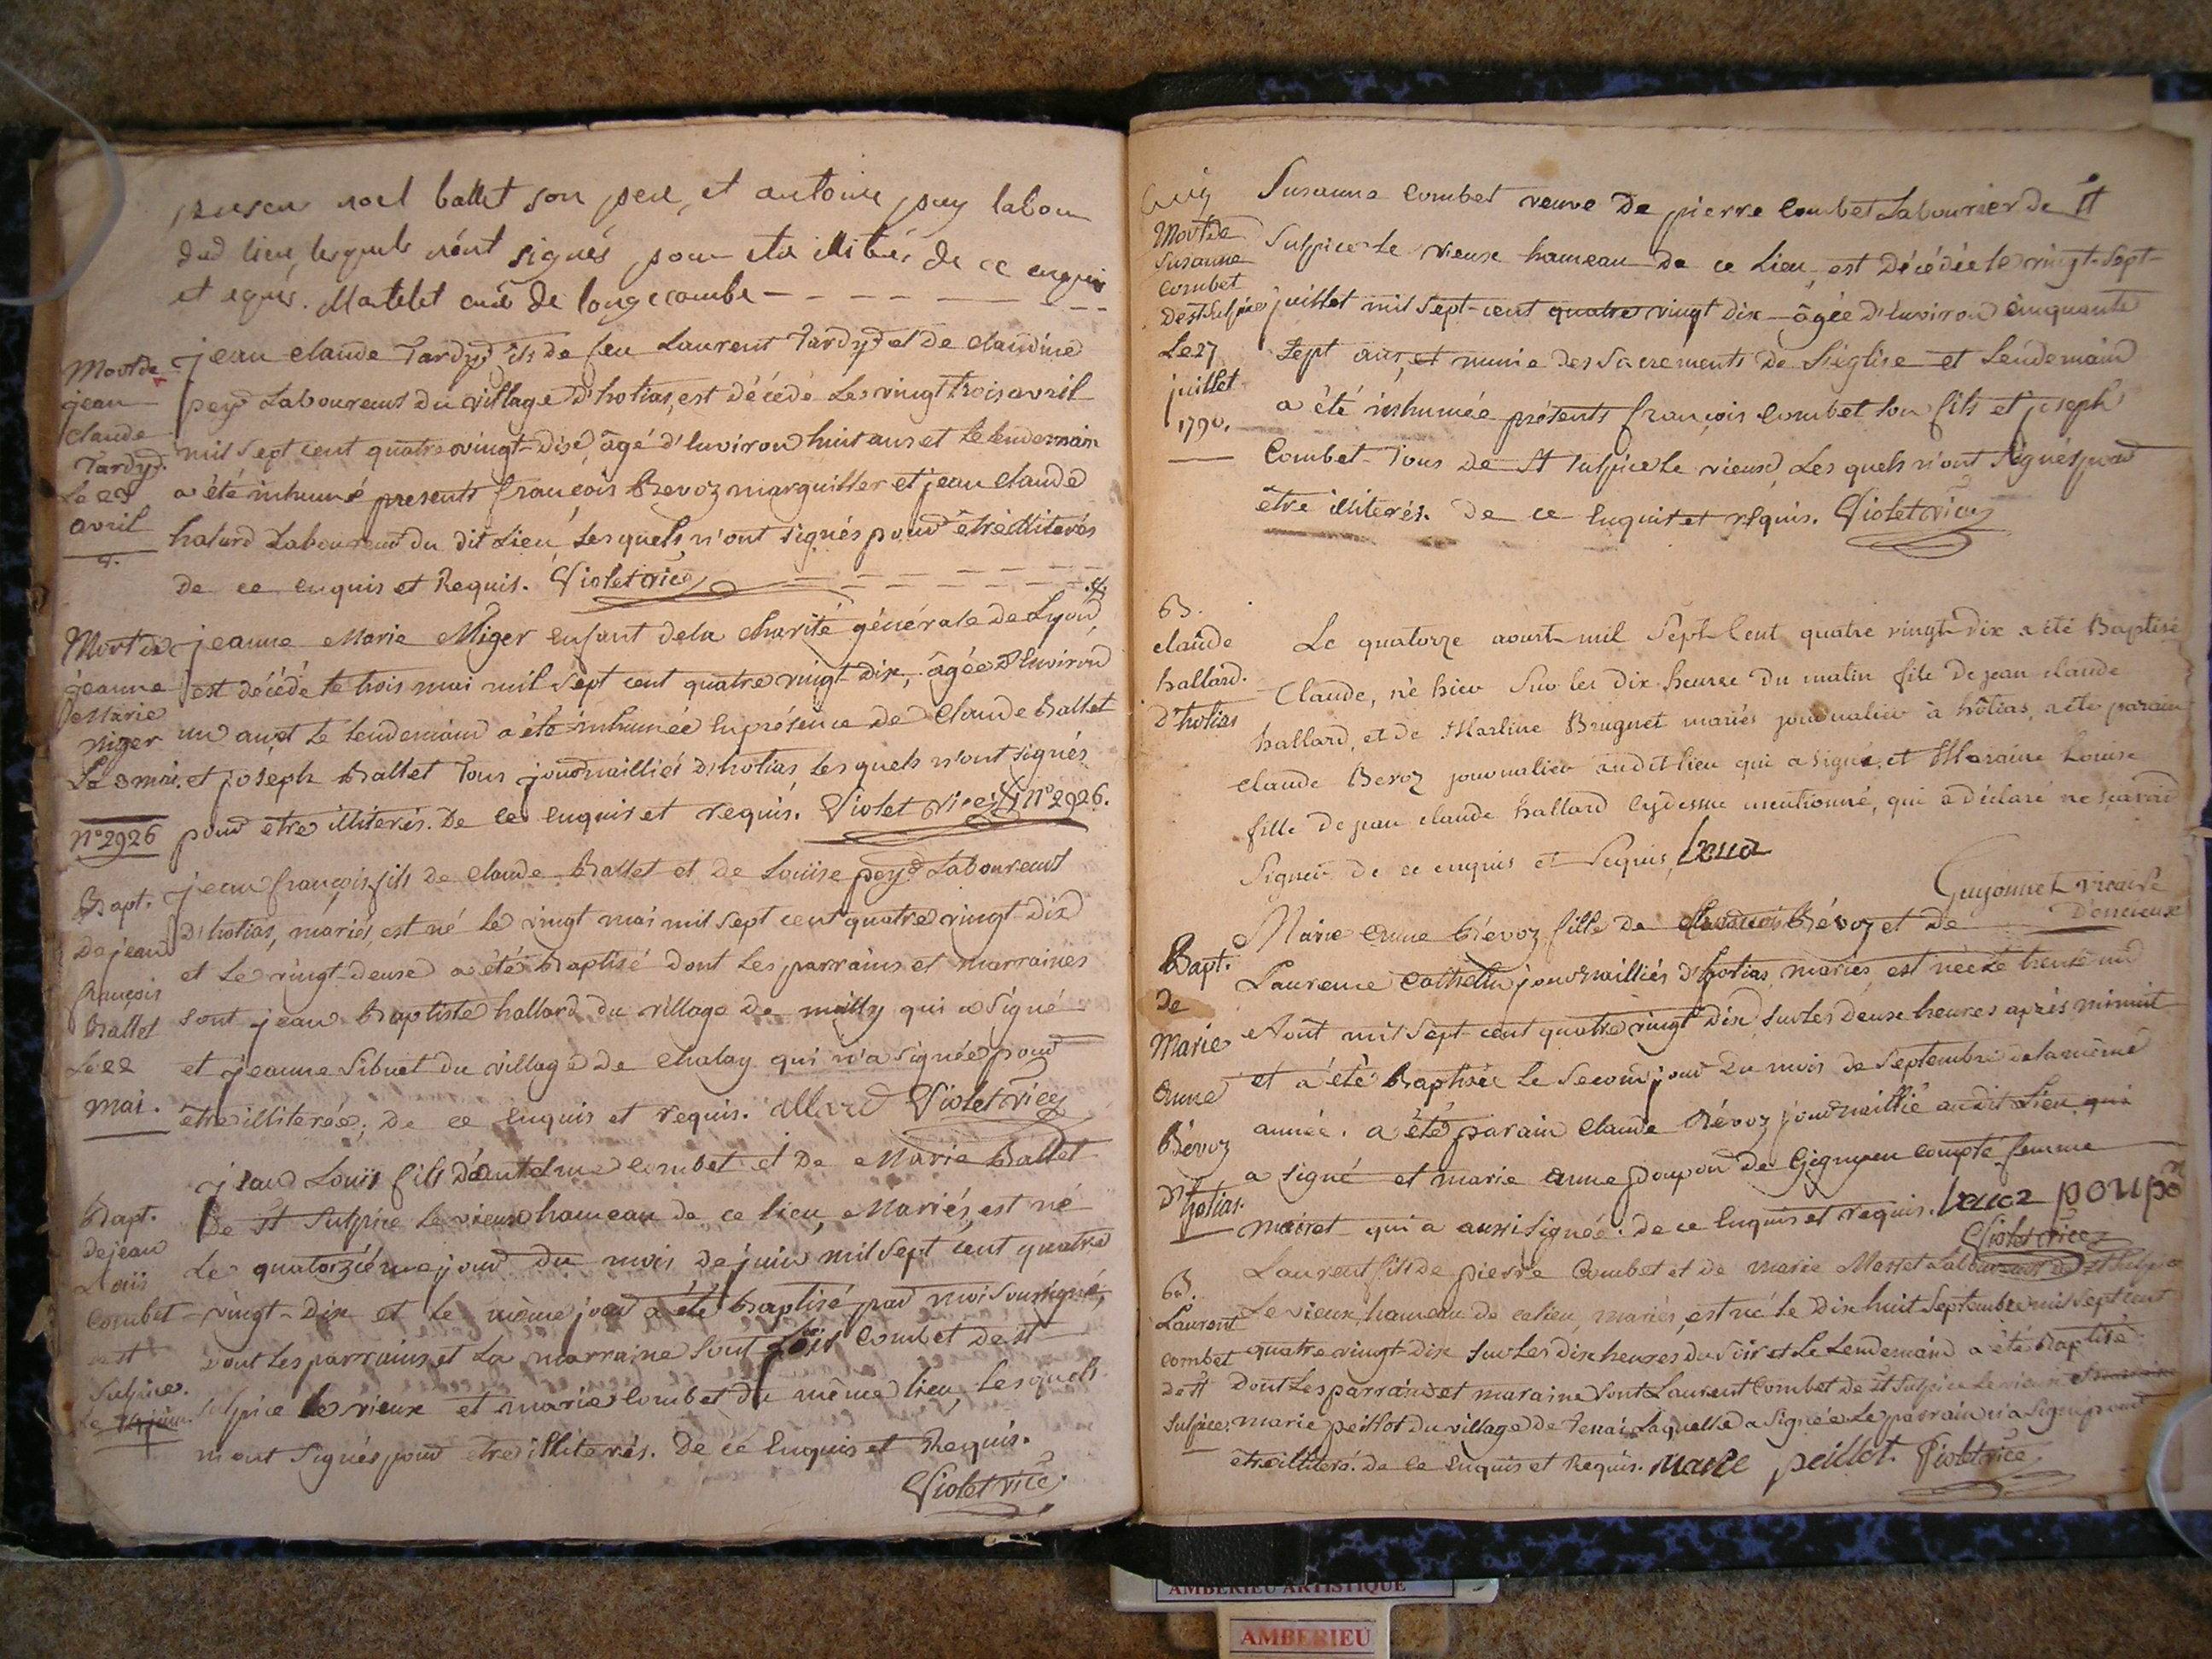 noel ballet son pere, et antoine puy labou
dud lieu, lesquels n'ont signés pour etre illiterés de ce enquis
et requis. Matelet curé de longecombe
Mort de
jean
claude
Tardy.
Le 23
avril
jean claude Tardy fils de feu Laurent Tardy et de claudine
pey Laboureurs du village d'hotias, est décédé Le vingt trois avril
mil sept cent quatre vingt-dix, âgé d'environ huit ans et le lendemain
a été inhumé presents françois Bevoz marguiller et jean claude
halard Laboureur du dit Lieu, Lesquels n'ont signés pour être illiterés
de ce enquis et Requis. Violet vice
Mort de
jeanne
Marie
Miger
Le 3 mai.
N° 2926
jeanne Marie Miger enfant de la charité générale de Lyon,
est décédé le trois mai mil sept cent quatre vingt-dix, âgée d'environ
un an, et le lendemain a été inhumée en présence de Claude Ballet
et joseph Ballet Tous journailliés d'hotias lesquels n'ont signés
pour etre illiterés. De ce enquis et requis. Violet vice N° 2926.
Bapt.
De jean
françois
Ballet
Le 22
mai.
jean françois fils de Claude Ballet et de Louise pey Laboureurs
D'hotias, mariés, est né le vingt mai mil sept cent quatre vingt-dix
et le vingt-deux a été Baptisé dont les parrains et marraines
sont jean Baptiste hallard du village de milly qui a signé
et jeanne Sibuet du village de Chaley qui n'a signée pour
être illiterée; De ce enquis et requis. allard Violet vice
Bapt.
De jean
Louis
Combet
de st
Sulpice.
Le 14 juin.
jean Louis fils d'antelme combet et De Marie Ballet
De St Sulpice le vieux hameau de ce lieu, Mariés, est né
Le quatorziéme jour du mois de juin mil sept cent quatre
vingt-dix et le même jour a été baptisé par moi soussigné,
dont les parrains et La marraine sont Loüis Combet de st
sulpice le vieux et marie Combet du même lieu, lesquels
n'ont signés pour etre illiterés. De ce enquis et Requis.
Violet vice
Mort de
Susanne
combet
De St Sulpice
Le 27
juillet
1790.
Susanne Combet veuve De pierre Combet Labourier de St
Sulpice le vieux hameau de ce Lieu est Décédée le vingt-sept
juillet mil sept-cent quatre vingt dix âgée d'environ cinquante
sept ans, et munie des Sacrements de L'église et lendemain
a été inhumée présents françois Combet son fils et joseph
Combet Tous de St Sulpice le vieux, Les quels n'ont signés pour
être illiterés. De ce enquis et requis. Violet vice
B.
claude
hallard.
d'hotias
Le quatorze aoust mil Sept Cent quatre vingt dix a été Baptisé
Claude, né hier Sur les Dix heures Du matin fils De jean claude
hallard, et de Marline Bruguet mariés journalier à hôtias, a été parain
Claude Bevoz journalier audit lieu qui a signé, et Maraine Louise
fille De jean claude hallard cydessus mentionné, qui a déclaré ne sçavoir
Signer De ce enquis et requis,
Guyonnet vicaire
D'oncieux
Bapt.
De
Marie
Anne
Bévoz
d'hotias.
Marie Anne Bévoz fille De Bévoz et De
Laurence Cathelin journailliés d'hotias, mariés, est née le trente un
Aout mil sept cent quatre vingt Dix sur les deux heures après minuit
et a été Baptisée le Second jour Du mois de Septembre de la même
année. a été parain Claude Bévoz journaillié audit Lieu qui
a signé et marie anne poupon de compte femme
mairet qui a aussi signée. de ce enquis et requis. poupon
Violet vice
B.
Laurent
combet
de St
Sulpice.
Laurent fils de pierre Combet et de marie Masset Laboureurs de St Sulpice
Le vieux hameau de ce lieu, mariés, est né le Dix huit Septembre mil sept cent
quatre vingt-Dix sur les dix heures du Soir et le Lendemain a été Baptisé
Dont les parrain et maraine sont Laurent Combet de St Sulpice le vieux
marie peillot du village de Tenai Laquelle a signée Le parrain n'a signé pour
etre illiteré. de ce enquis et Requis. marie peillot. Violet vice
AMBERIEU ARTISTIQUE
AMBERIEU